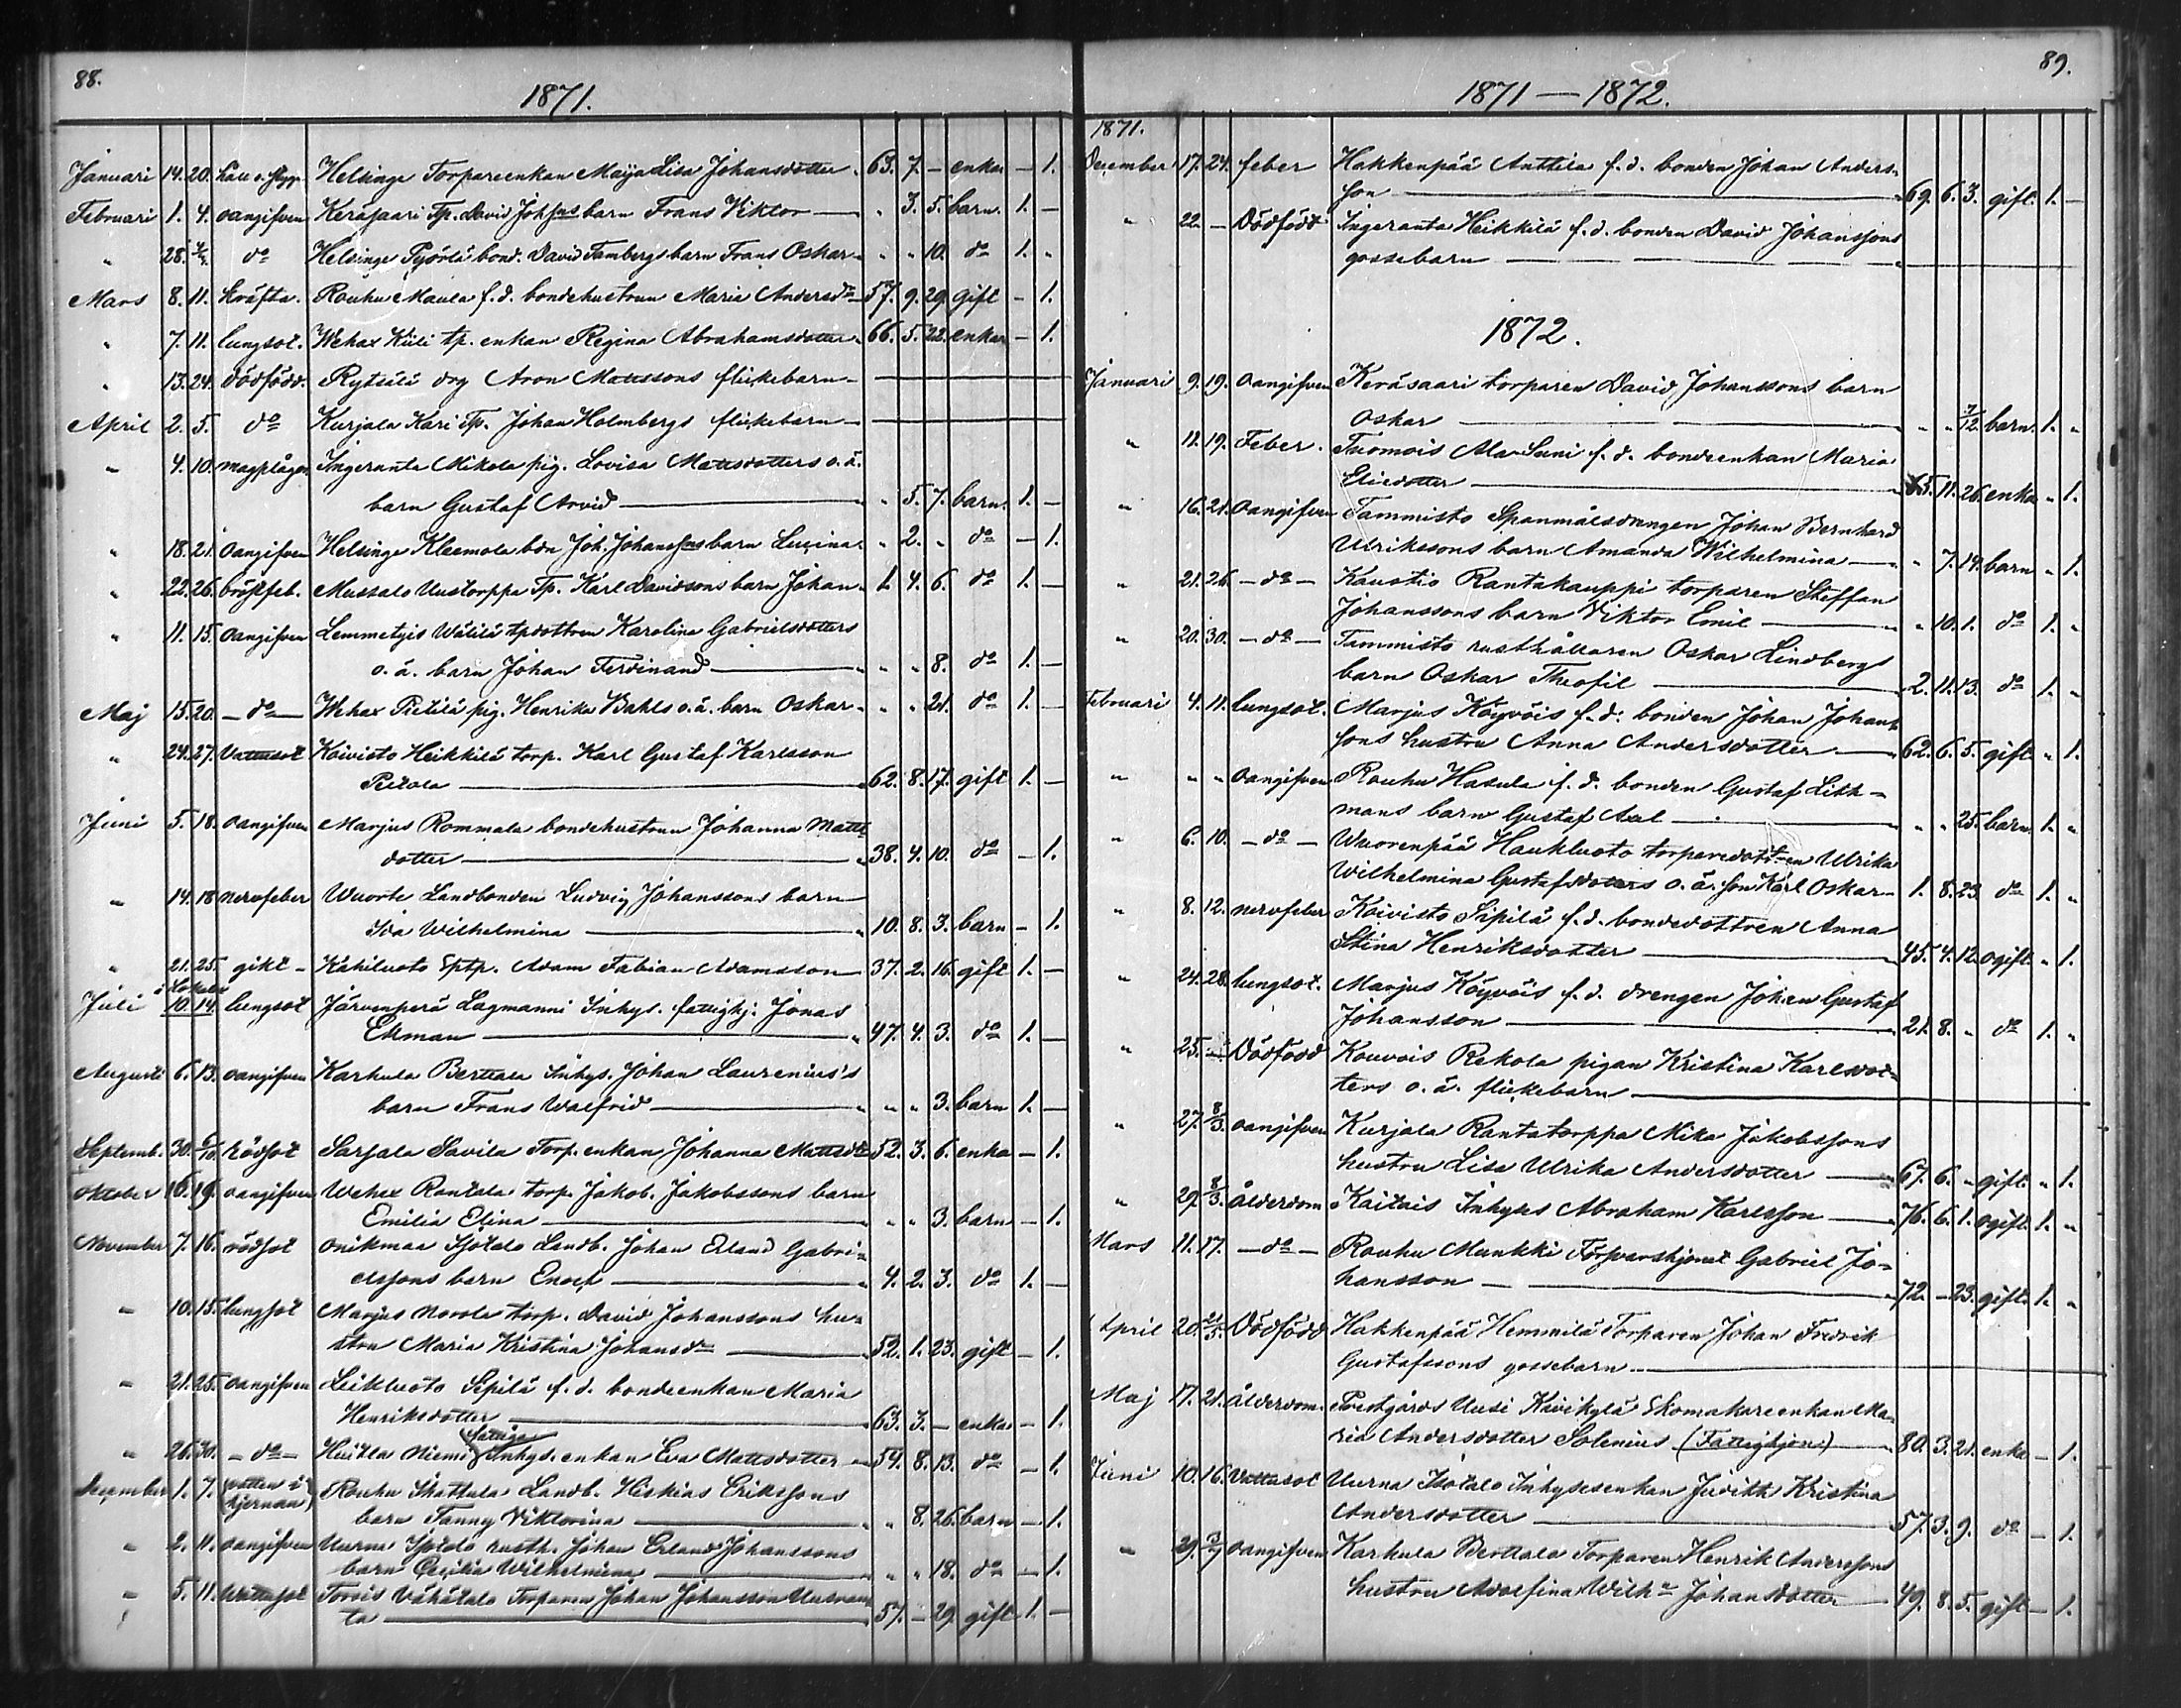 88.
1871.
Januari 14. 20. Helsinge Torpareenkan Maija Lisa Johansdotter 63. 7. — enka — 1.
Februari 1. 4. oangifven Keräsaari Tp. David Johssns barn Frans Viktor — „ 3. 5. barn. 1. —
„ 28. do Helsinge Pyörli bond. David Tambergs barn Frans Oskar „ „ 10. do 1. „
Mars 8. 11. kräfta. Rouhu Maula f.d. bondehustrun Maria Andersdr 57. 9. 29. Gift — 1.
„ 7. 11. lungsot. Wehax Küli tp. enkan Regina Abrahamsdotter 66. 5. 22. enka — 1.
„ 13. 24. dödfödd. Rytsäli drg Aron Mattssons flickebarn —
April 2. 5. do Kurjala Kari Tp. Johan Holmbergs flickebarn —
„ 4. 10. magplågor Ingeranta Mikola pig. Lovisa Mattsdotters o.ä.
barn Gustaf Arvid — „ 5. 7. barn. 1. —
„ 18. 21. Oangifven Helsinge Kleemola bdn Joh. Johanssns barn Lucina „ 2. „ do — 1.
„ 22. 26. bröstfeb. Mussalo Uustorppa Tp. Karl Davidsons barn Johan 1. 4. 6. do 1. —
„ 11. 15. oangifven Lemmetyis Wälilä tpdottren Karolina Gabrielsdotters
o.ä. barn Johan Ferdinand — „ „ 8. do 1. —
Maj 15. 20. — do — Wehax Pietilä pig. Henrika Bahls o.ä. barn Oskar „ „ 21. do 1. —
„ 24. 27. Vattusot Koivisto Heikkilä torp. Karl Gustaf Karlsson
Pietola — 62. 8. 17. gift 1. —
Juni 5. 18. oangifven Marjus Rommala bondehustrun Johanna Matts
dotter — 38. 4. 10. do — 1.
„ 14. 18 nervfeber Wuorte Landbonden Ludvig Johanssons barn
Ida Wilhelmina — 10. 8. 3. barn — 1.
„ 21. 25. gikt — Kahiluoto Sptp. Adam Fabian Adamsson — 37. 2. 16. gift 1. —
Juli 10. 14. lungsot Järvenperä Lagmanni Inhys. fattighj. Jonas
Ekman — 47. 4. 3. do 1. —
Augusti 6. 13. oangifven Karhula Berttala Inhys. Johan Laurenius's
barn Frans Walfrid — „ „ 3. barn 1. —
Septemb. 30. 6/10. rödsot Sarjala Savila Torp. enkan Johanna Mattsdr 52. 3. 6. enka — 1.
Oktober 16. 19. oangifven Wehax Rantala torp. Jakob Jakobssons barn
Emilia Elina — „ „ 3. barn — 1.
November 7. 16. rödsot Onikmaa Isotalo Landb. Johan Erland Gabri-
elssons barn Enok — 4. 2. 3. do 1. —
„ 10. 15. lungsot Marjus Norola torp. David Johanssons hu-
stru Maria Kristina Johansdr — 52. 1. 23. gift — 1.
„ 21. 25. oangifven Leikluoto Sipilä f.d. bondeenkan Maria
Henriksdotter — 63. 3. — enka — 1.
„ 26. 30. — do — Hiitla Niemi (fattiga) Inhys. enkan Eva Mattsdotter 54. 8. 13. do — 1.
December 1. 7. (vatten i hjernan) Rouhu Skattula Landb. Heskias Erikssons
barn Fanny Viktorina — „ 8. 26. barn — 1.
„ 2. 11. oangifven Uurna Isotalo rusth. Johan Erland Johanssons
barn Cecilia Wilhelmina — „ „ 18. do — 1.
„ 5. 11. Wattusot Torois Vähätalo Torparen Johan Johansson Uusran-
ta — 57. — 29. gift 1. —
89.
1871 — 1872.
1871.
December 17. 24. feber Hakkenpää Anttila f.d. bonden Johan Anders-
son — 69. 6. 3. gift. 1. —
„ 22. — Dödfödt Ingeranta Heikkilä f.d. bonden David Johanssons
gossebarn —
1872.
Januari 9. 19. Oangifven Keräsaari torparen David Johanssons barn
Oskar — „ „ 7/12. barn. 1. „
„ 11. 19. Feber. Tuomois Ala-Suni f.d. bondeenkan Maria
Eliedotter — 65. 11. 26. enka „ 1.
„ 16. 21. Oangifven Tammisto Spanmålsdrängen Johan Bernhard
Ulrikssons barn Amanda Wilhelmina — „ 7. 14. barn „ 1.
„ 21. 26. — do — Kaustio Rantakauppi torparen Steffan
Johanssons barn Viktor Emil — „ 10. 1. do 1. „
„ 20. 30. — do — Tammisto rusthållaren Oskar Lindbergs
barn Oskar Theofil — 2. 11. 13. do 1. „
Februari 4. 11. lungsot. Marjus Köyvöis f.d. bonden Johan Johans-
sons hustru Anna Andersdotter — 62. 6. 5. gift „ 1.
„ „ „ oangifven Rouhu Hasula f.d. bonden Gustaf Lith-
mans barn Gustaf Axel — „ „ 25. barn 1. „
„ 6. 10. — do — Wuorenpää Haukluoto torparedottren Ulrika
Wilhelmina Gustafsdotters o.ä. son Karl Oskar — 1. 8. 23. do 1. „
„ 8. 12. nervfeber Koivisto Sipilä f.d. bondedottren Anna
Stina Henriksdotter — 45. 4. 12. ogift „ 1.
„ 24. 28. lungsot. Marjus Köyvöis f.d. drengen Johan Gustaf
Johansson — 21. 8. „ do 1. „
„ 25. — Dödfödd Kouvois Rekola pigan Kristina Karlsdot-
ters o.ä. flickebarn —
„ 27. 8/3. oangifven Kurjala Rantatorppa Mika Jakobssons
hustru Lisa Ulrika Andersdotter — 67. 6. „ gift. „ 1.
„ 29. 8/3. Ålderdom Kaitais Inhyses Abraham Karlsson — 76. 6. 1. ogift. 1. „
Mars 11. 17. — do — Rouhu Munkki Torpareshjonet Gabriel Jo-
hansson — 72. — 23. gift. 1. „
April 20. Dödfödd Hakkenpää Hemmilä Torparen Johan Fredrik
Gustafssons gossebarn —
Maj 17. 21. ålderdom. Prestgårds Uusi Kivikylä Skomakareenkan Ma-
ria Andersdotter Solenius (Fattighjon) — 80. 3. 21. enka — 1.
Juni 10. 16. Vattusot Uurna Isotalo Inhysesenkan Judith Kristina
Andersdotter — 57. 3. 9. do — 1.
„ 29. oangifven Karhula Berttala Torparen Henrik Anderssons
hustru Adolfina Wilha Johansdotter — 49. 8. 5. gift — 1.